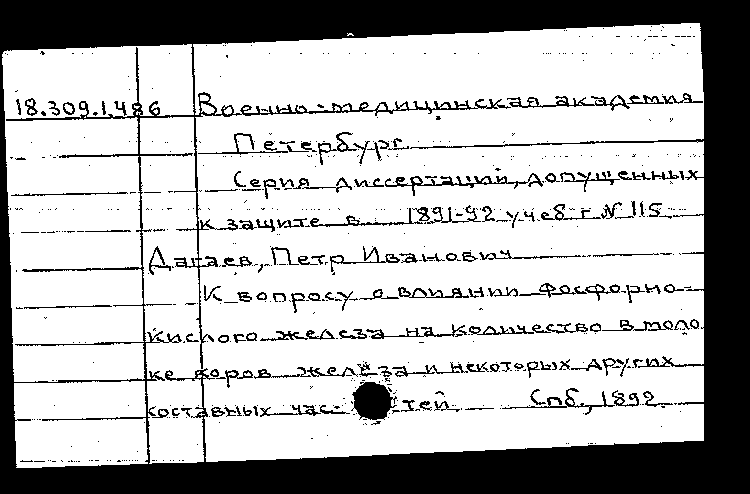 18.309.1.486 Военно-медицинская академия
Петербург
Серия диссертаций, допущенных
к защите в 1891-92 учеб г N 115
Дагаев, Петр Иванович
К вопросу о влиянии фосфорно-
кислого железа на количество в моло
ке коров железа и некоторых других
составных час- тей. Спб., 1892.